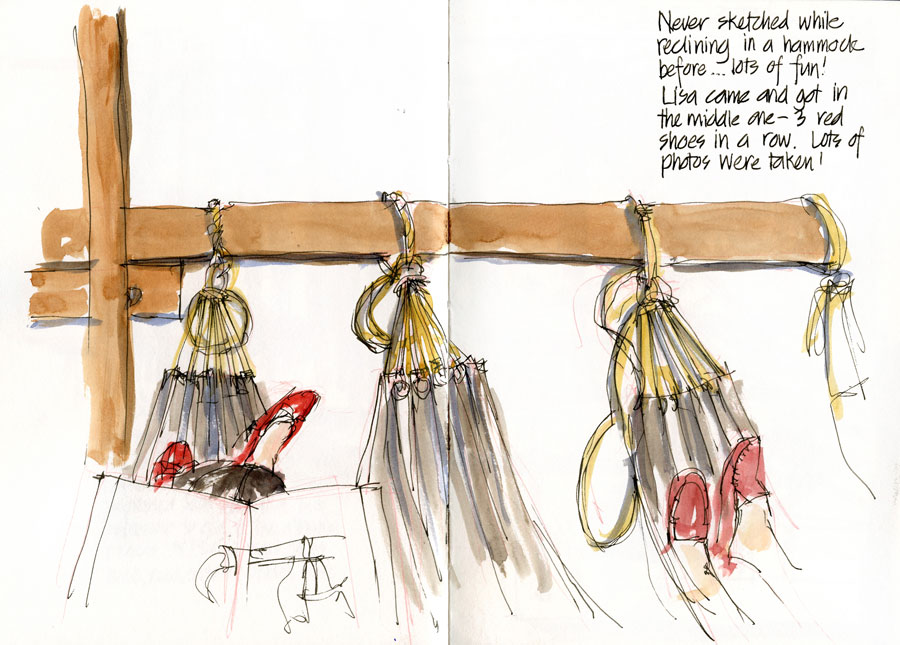 Never sketched while
reclining in a hammock
before... lots of fun!
Lisa came and got in
the middle one - 3 red
shoes in a row. Lots of
photos were taken!